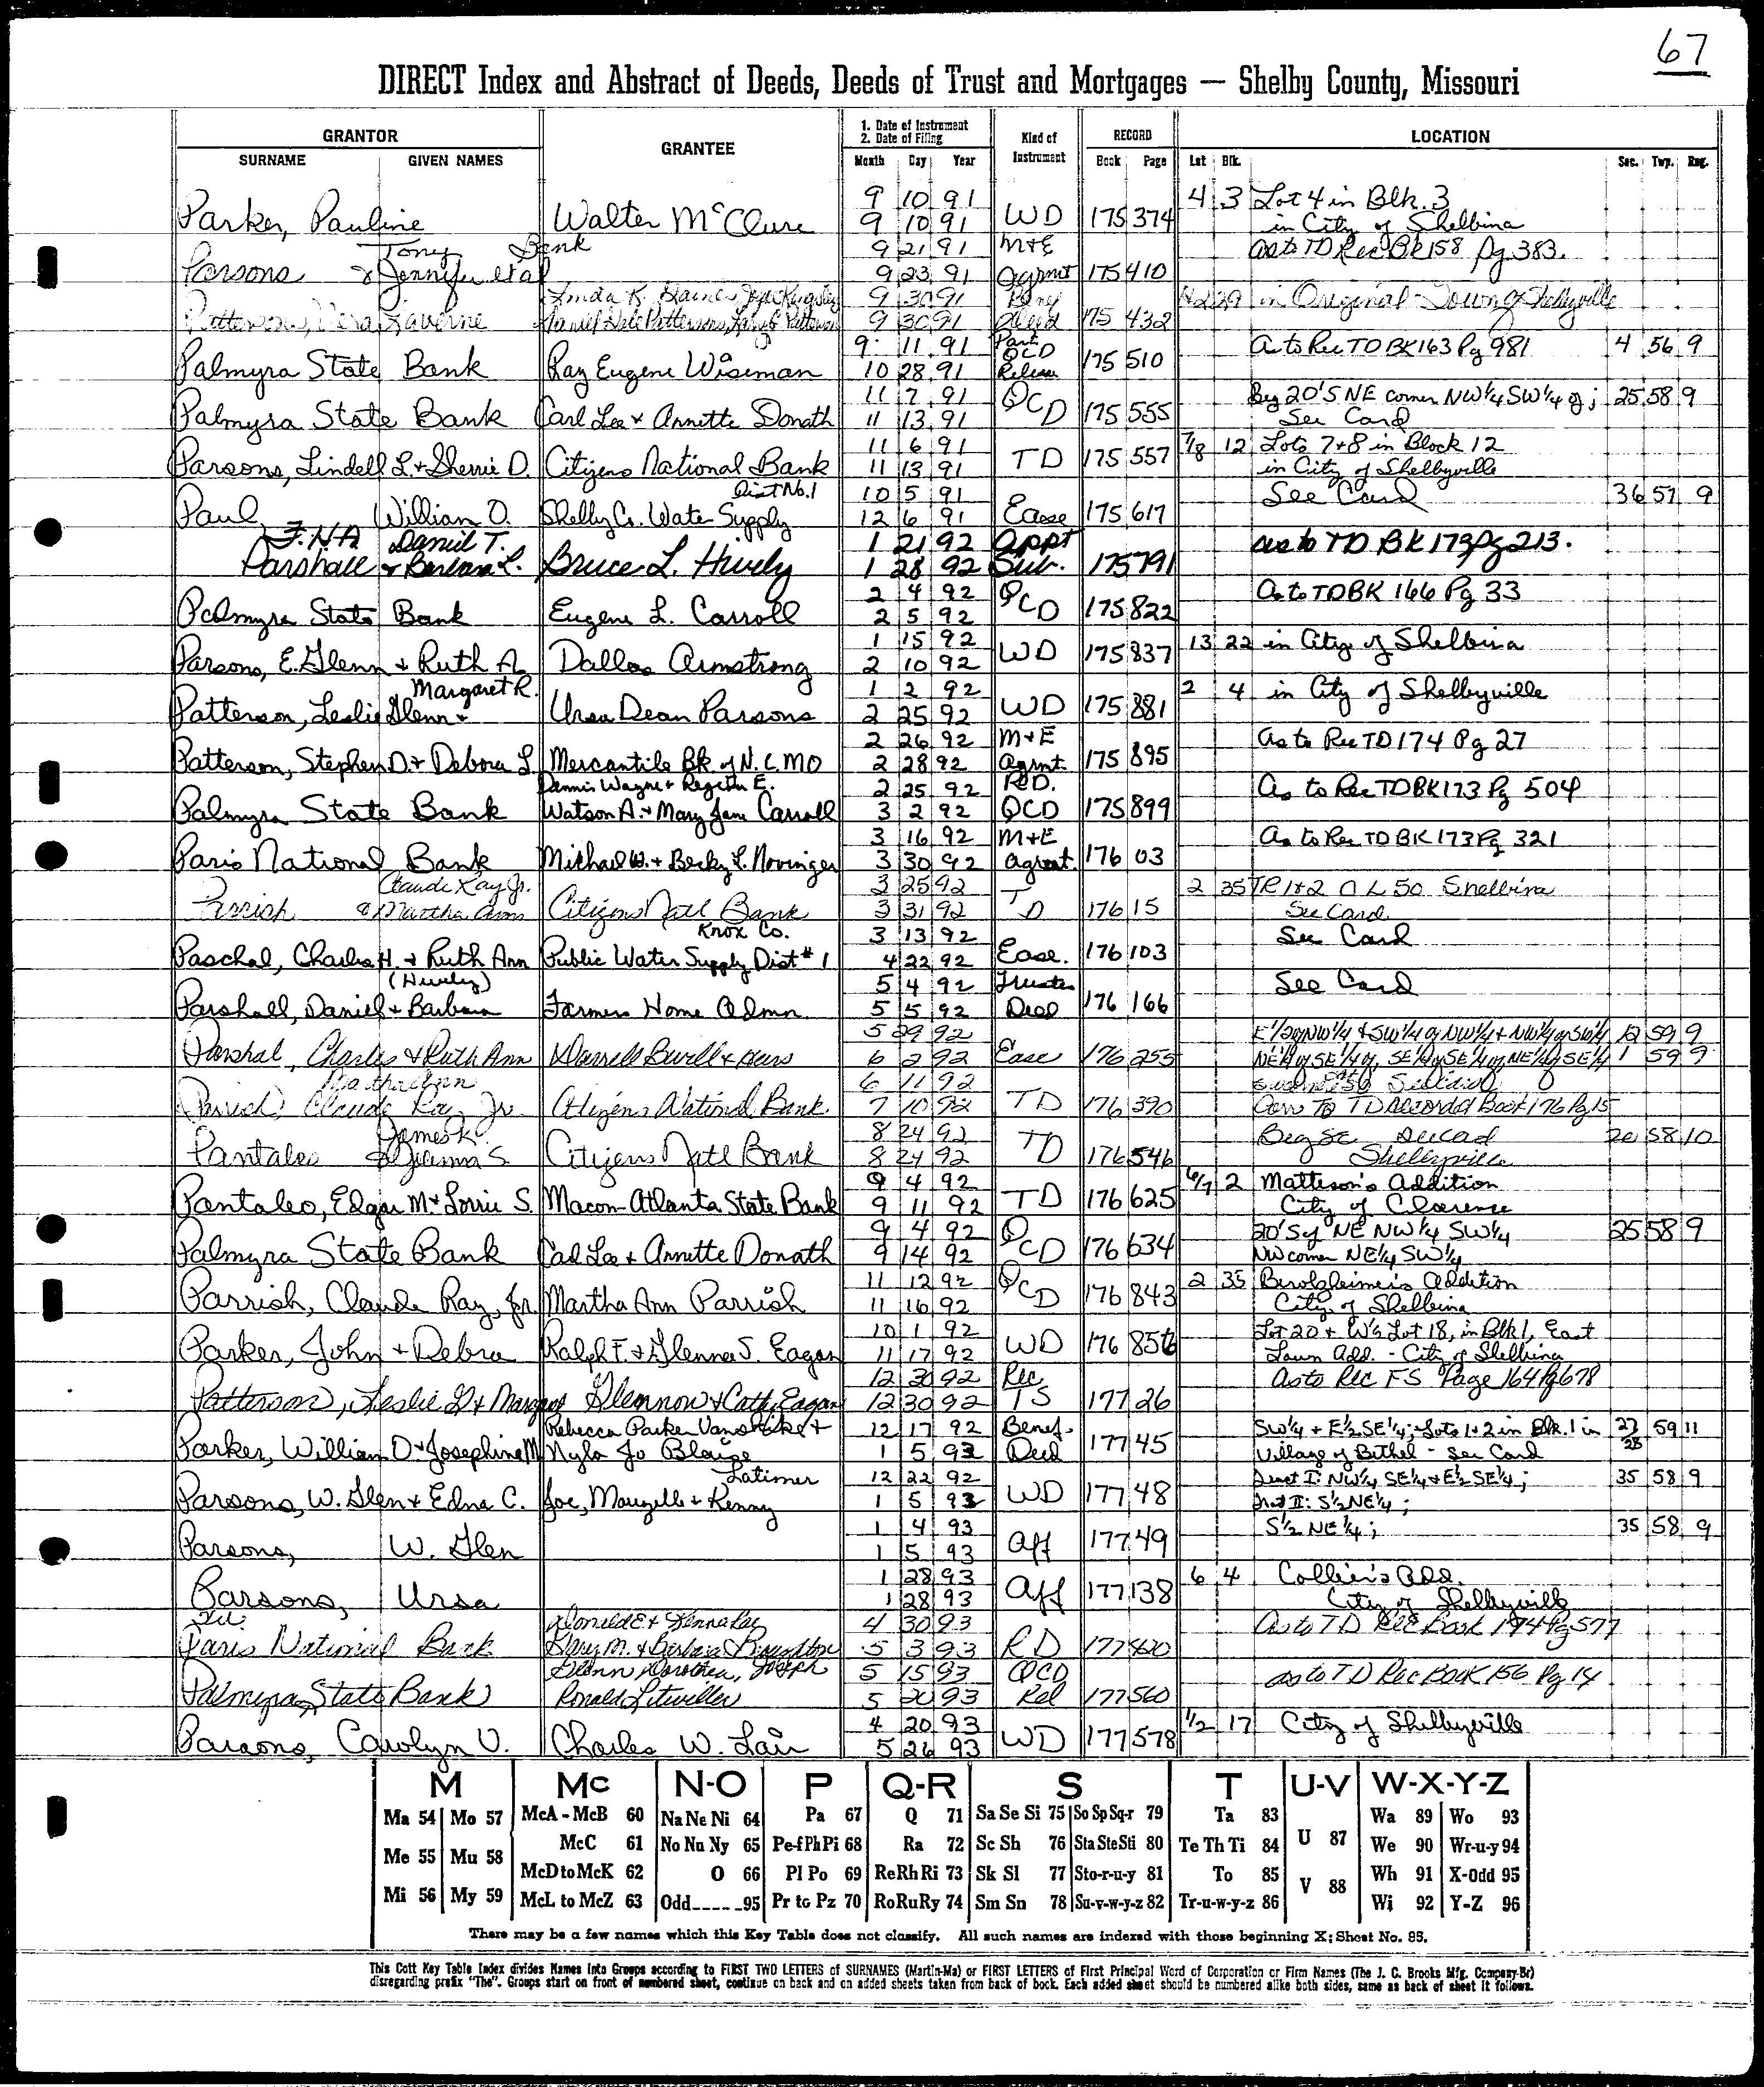 67
DIRECT Index and Abstract of Deeds, Deeds of Trust and Mortgages — Shelby County, Missouri
GRANTOR GRANTEE 1. Date of Instrument 2. Date of Filing Kind of Instrument RECORD LOCATION
SURNAME GIVEN NAMES Month Day Year Book Page Lot Blk. Sec. Twp. Rng.
9 10 91 4 3 Lot 4 in Blk. 3
Parker, Pauline Walter McClure 9 10 91 WD 175 374 in City of Shelbina
Tony Bank 9 21 91 M+E as to TD Rec BK 158 Pg 383.
Parsons & Jennifer etal 9 23 91 Agrmt 175 410
Linda K. 9 30 91 Benf in Original Town of Shelbyville
Patterson, Vera Laverne Daniel Dale Patterson, Larry G Patterson 9 30 91 Deed 175 432
9 11 91 Part QCD As to Rec TO BK 163 Pg 981 4 56 9
Palmyra State Bank Ray Eugene Wiseman 10 28 91 Release 175 510
11 7 91 Beg 20'S NE corner NW¼ SW¼ of; 25 58 9
Palmyra State Bank Carl Lee + Annette Donath 11 13 91 QCD 175 555 See Card
11 6 91 7/8 12 Lots 7+8 in Block 12
Parsons, Lindell L. + Sherrie D. Citizens National Bank 11 13 91 TD 175 557 in City of Shelbyville
Dist No. 1 10 5 91 See Card 36 57 9
Paul, William O. Shelby Co. Water Supply 12 6 91 Ease 175 617
F.H.A Daniel T. 1 21 92 Appt as to TD BK 173 Pg 213.
Parshall + Barbara L. Bruce L. Hively 1 28 92 Sub. 175 791
2 4 92 As to TD BK 166 Pg 33
Palmyra State Bank Eugene L. Carroll 2 5 92 QCD 175 822
1 15 92 13 22 in City of Shelbina
Parsons, E. Glenn + Ruth A. Dallas Armstrong 2 10 92 WD 175 837
Margaret R. 1 2 92 2 4 in City of Shelbyville
Patterson, Leslie Glenn + Ursa Dean Parsons 2 25 92 WD 175 881
2 26 92 M+E As to Rec TD 174 Pg 27
Patterson, Stephen D. + Debora L. Mercantile Bk of N.C. MO 2 28 92 Agrmt. 175 895
Dennis Wayne + Regina E. 2 25 92 As to Rec TD BK 173 Pg 504
Palmyra State Bank Watson A. + Mary Jane Carroll 3 2 92 QCD 175 899
3 16 92 M+E As to Rec TD BK 173 Pg 321
Paris National Bank Michael W. + Becky L. Novinger 3 30 92 Agrmt. 176 03
Claude Ray Jr. 3 25 92 2 35 TR 1+2 O L 50 Shelbina
Parrish & Martha Ann Citizens Natl Bank 3 31 92 TD 176 15 See Card
Knox Co. 3 13 92 See Card
Paschal, Charles H. + Ruth Ann Public Water Supply Dist # 1 4 22 92 Ease. 176 103
(Hively) 5 4 92 Trustees See Card
Parshall, Daniel + Barbara Farmers Home Admn 5 5 92 Deed 176 166
5 29 92 E½ of NW¼ + SW¼ of NW¼ + NW¼ of SW¼ 12 59 9
Parshal, Charles & Ruth Ann Darrell Buvell + 6 2 92 Ease 176 255 NE¼ of SE¼ of, SE¼ of SE¼ of NE¼ of SE¼ 1 59 9
Martha Ann 6 11 92
Parrish, Claude Ray Jr Citizens National Bank 7 10 92 TD 176 390 Corr To TD Recorded Book 176 Pg 15
James K. 8 24 92 Beg SE 20 58 10
Pantaleo & S. Citizens Natl Bank 8 24 92 TD 176 546 Shelbyville
9 4 92 6/7 2 Matteson's Addition
Pantaleo, Edgar M + Lorrie S. Macon-Atlanta State Bank 9 11 92 TD 176 625 City of Clarence
9 4 92 20'S of NE NW¼ SW¼ 25 58 9
Palmyra State Bank Carl Lee + Annette Donath 9 14 92 QCD 176 634 NW corner NE¼ SW¼
11 12 92 2 35 Berolzheimer's Addition
Parrish, Claude Ray, Jr. Martha Ann Parrish 11 16 92 QCD 176 843 City of Shelbina
10 1 92 Lot 20 + W½ Lot 18, in Blk 1, East
Parker, John + Debra Ralph F. + Glenna S. Eagan 11 17 92 WD 176 856 Lawn Add. - City of Shelbina
12 30 92 Rec As to Rec FS Page 164 Pg 678
Patterson, Leslie G + Margaret Glennon + Cathy Eagan 12 30 92 TS 177 26
Rebecca Parker Vanskike + 12 17 92 Benef. SW¼ + E½ SE¼; Lots 1+2 in Blk. 1 in 27/28 59 11
Parker, William O. + Josephine M Nyla Jo Blaise 1 5 93 Deed 177 45 Village of Bethel - See Card
Latimer 12 22 92 Tract I: NW¼ SE¼ + E½ SE¼; 35 58 9
Parsons, W. Glen + Edna C. Joe, Mauzelle + Kenny 1 5 93 WD 177 48 Tract II: S½ NE¼;
1 4 93 S½ NE¼; 35 58 9
Parsons, W. Glen 1 5 93 Aff 177 49
1 28 93 6 4 Collier's Add.
Parsons, Ursa 1 28 93 Aff 177 138 City of Shelbyville
Donald E + Glenna Kay 4 30 93 As to TD Rec Book 174 Pg 577
Paris National Bank Gary M. + Barbara Broughton 5 3 93 RD 177 420
Glenn, Dorothea, Joseph 5 15 93 QCD as to TD Rec Book 156 Pg 14
Palmyra State Bank Ronald Litwiller 5 20 93 Rel 177 560
4 20 93 1/2 17 City of Shelbyville
Parsons, Carolyn V. Charles W. Lair 5 26 93 WD 177 578
M Mc N-O P Q-R S T U-V W-X-Y-Z
Ma 54 Mo 57 McA - McB 60 Na Ne Ni 64 Pa 67 Q 71 Sa Se Si 75 So Sp Sq-r 79 Ta 83 U 87 Wa 89 Wo 93
McC 61 No Nu Ny 65 Pe-f Ph Pi 68 Ra 72 Sc Sh 76 Sta Ste Sti 80 Te Th Ti 84 We 90 Wr-u-y 94
Me 55 Mu 58 McD to McK 62 O 66 Pl Po 69 Re Rh Ri 73 Sk Sl 77 Sto-r-u-y 81 To 85 V 88 Wh 91 X-Odd 95
Mi 56 My 59 McL to McZ 63 Odd-----95 Pr to Pz 70 Ro Ru Ry 74 Sm Sn 78 Su-v-w-y-z 82 Tr-u-w-y-z 86 Wi 92 Y-Z 96
There may be a few names which this Key Table does not classify. All such names are indexed with those beginning X; Sheet No. 95.
This Cott Key Table Index divides Names into Groups according to FIRST TWO LETTERS of SURNAMES (Martin-Ma) or FIRST LETTERS of First Principal Word of Corporation or Firm Names (The J. C. Brooks Mfg. Company-Br)
disregarding prefix "The". Groups start on front of numbered sheet, continue on back and on added sheets taken from back of book. Each added sheet should be numbered alike both sides, same as back of sheet it follows.